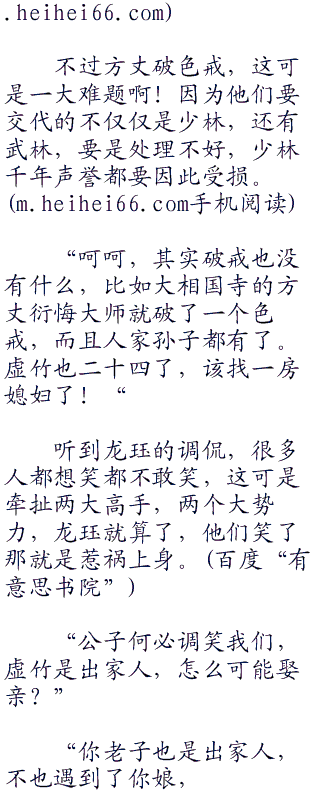 .heihei66.com)
不过方丈破色戒，这可
是一大难题啊！因为他们要
交代的不仅仅是少林，还有
武林，要是处理不好，少林
千年声誉都要因此受损。
(m.heihei66.com手机阅读)
“呵呵，其实破戒也没
有什么，比如大相国寺的方
丈衍悔大师就破了一个色
戒，而且人家孙子都有了。
虚竹也二十四了，该找一房
媳妇了！“
听到龙珏的调侃，很多
人都想笑都不敢笑，这可是
牵扯两大高手，两个大势
力，龙珏就算了，他们笑了
那就是惹祸上身。(百度“有
意思书院”)
“公子何必调笑我们，
虚竹是出家人，怎么可能娶
亲？”
“你老子也是出家人，
不也遇到了你娘，